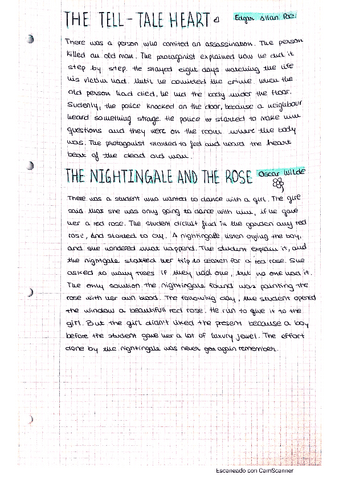 THE TELL-TALE HEART Edgar Allan Poe
There was a person who comited an assassination. The person
killed an old man. The protagonist explained how he did it
step by step. He stayed eight days watching the life
his victim had. Until he comitted the crime when the
old person had died, he hid the body under the floor.
Sudenly, the police knocked on the door, because a neighbour
heard something strage. The police started to make him
questions and they were on the room where the body
was. The protagonist started to fell and heard the heart
beat of the dead old man.
THE NIGHTINGALE AND THE ROSE Oscar Wilde
There was a student who wanted to dance with a girl. The girl
said that she was only going to dance with him, if he gave
her a red rose. The student didn't find in the garden any red
rose, and started to cry. A nightingale listen crying the boy,
and she wondered what happend. The student explain it, and
the nightgale started her trip to search for a red rose. She
asked so many trees if they had one, but no one had it.
The only soultion the nightingale found was painting the
rose with her own blood. The following day, the student opened
the window a beautifull red rose. He run to give it to the
girl. But the girl didn't liked the present because a boy
before the student gave her a lot of luxury jewel. The effort
done by the nightingale was never again remember.
Escaneado con CamScanner